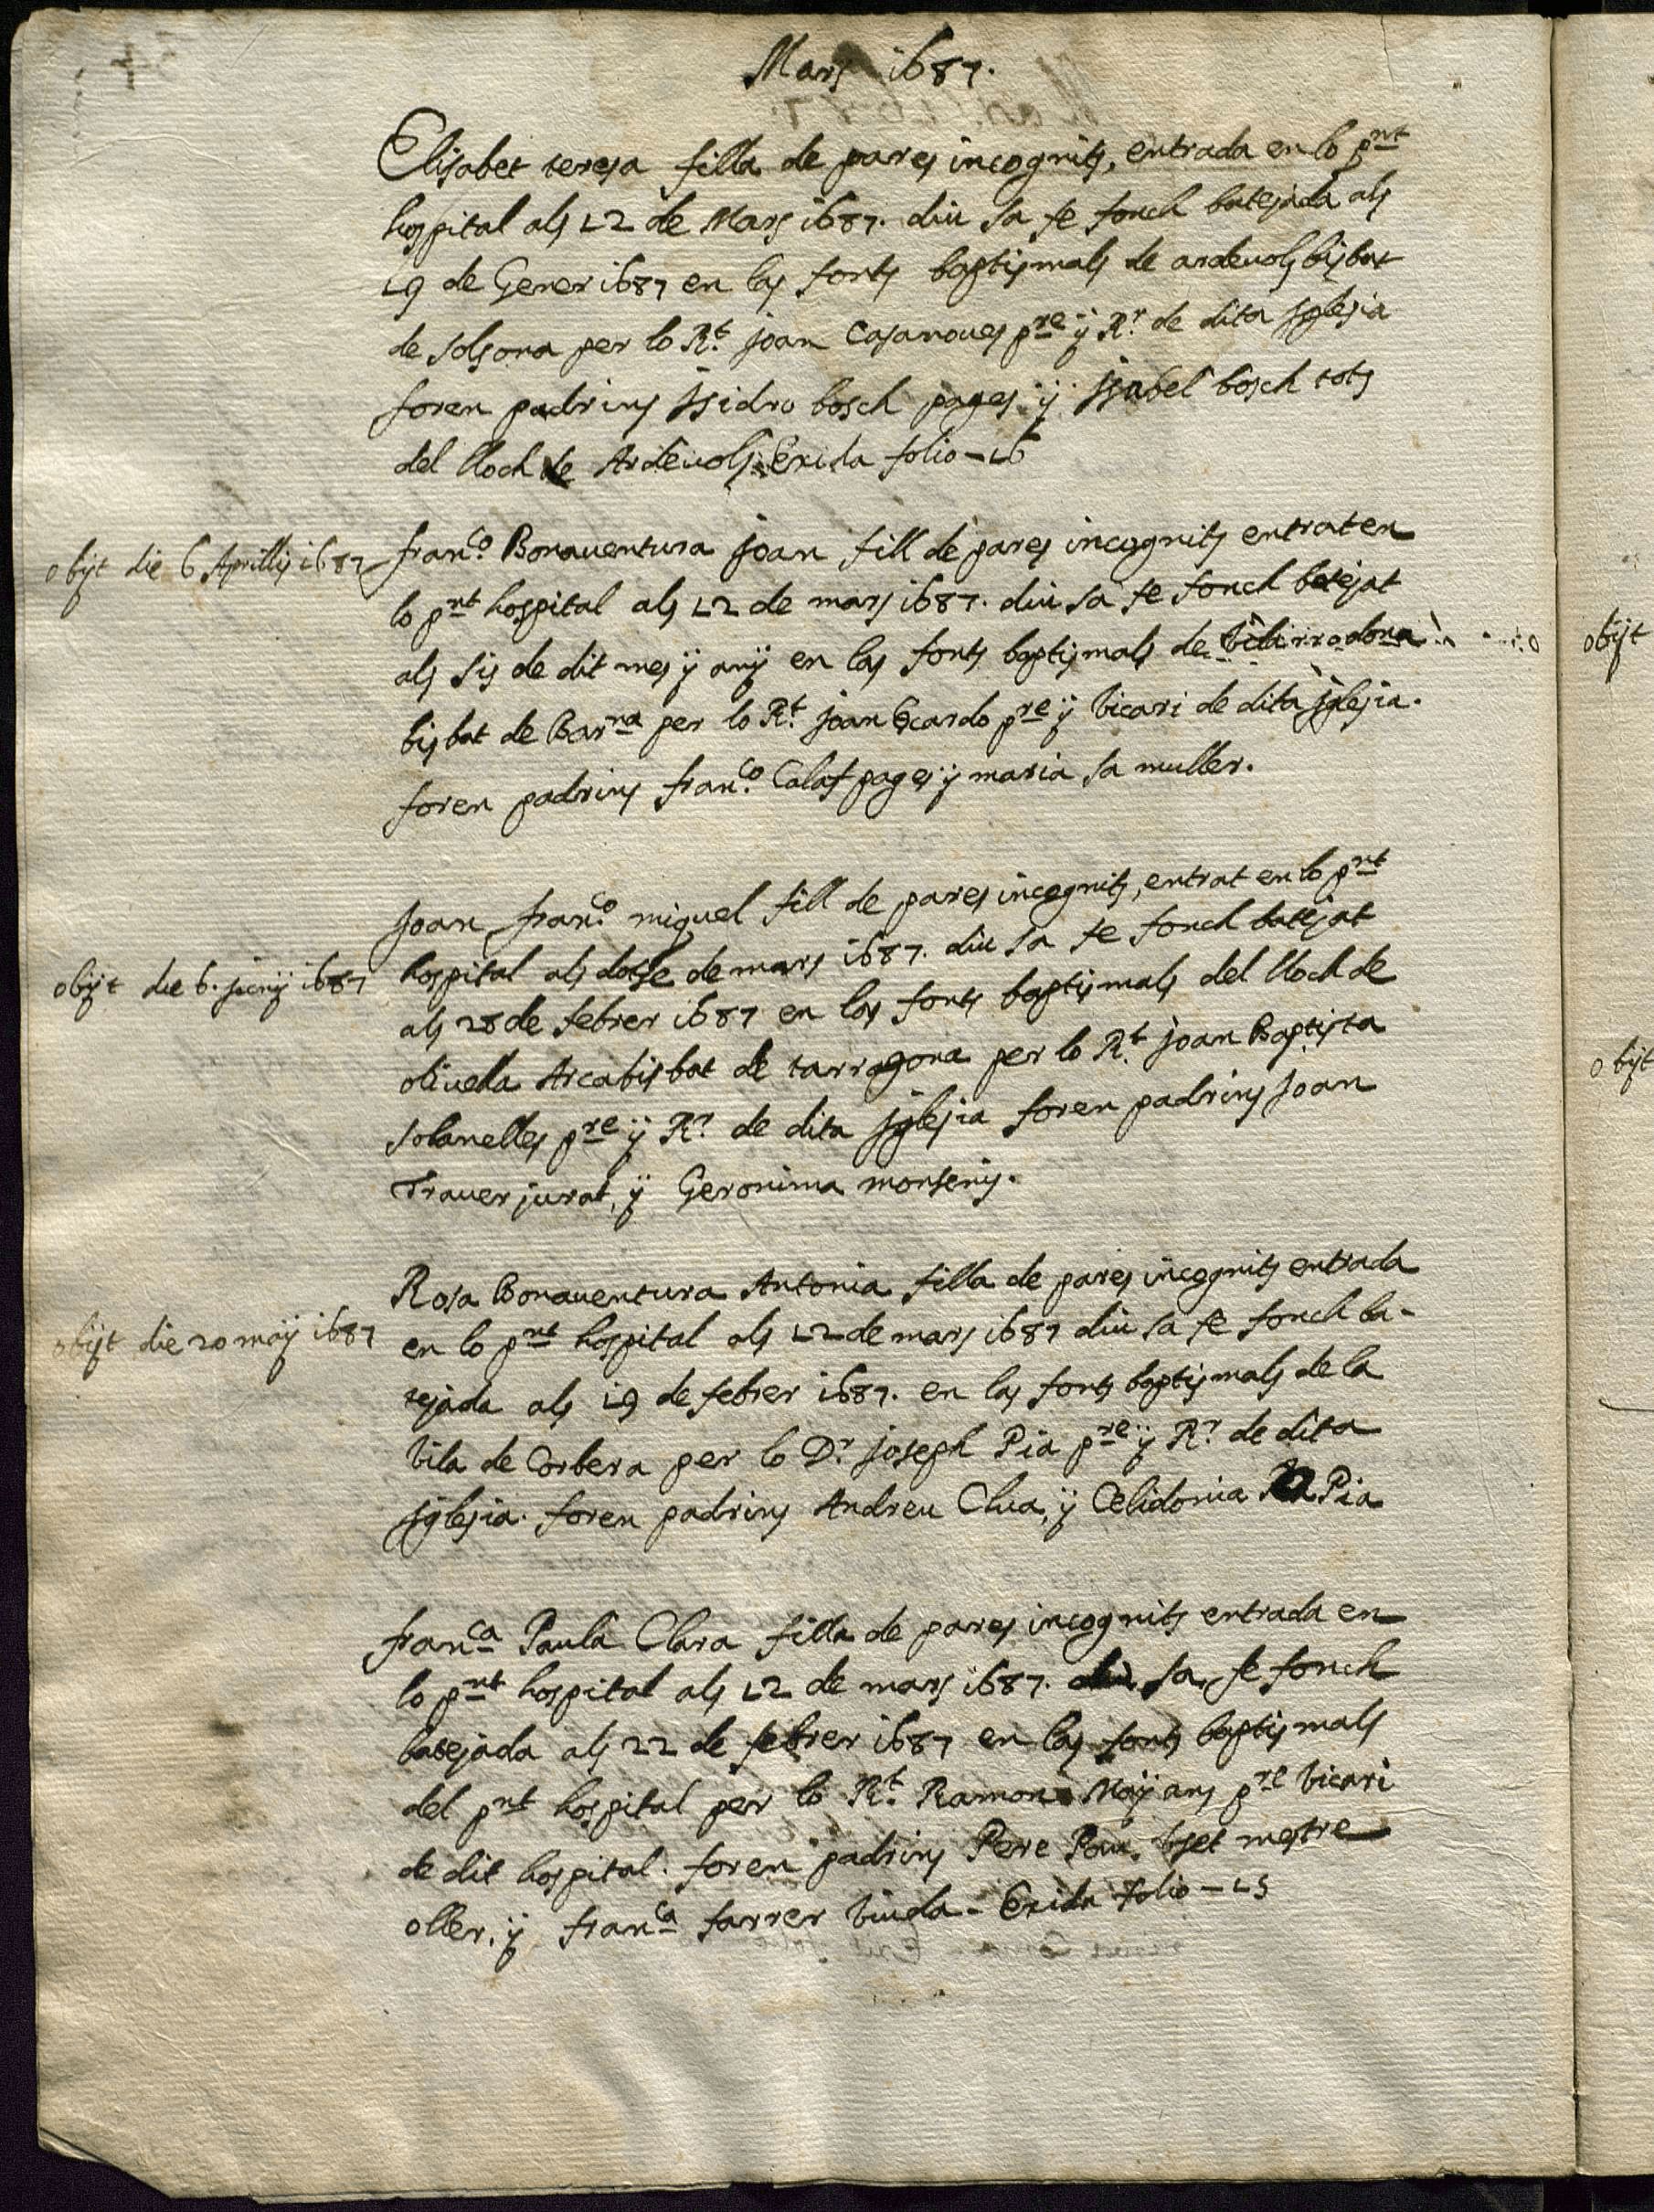 Mars 1687.
Elisabet teresa filla de pares incognits, entrada en lo pnt
hospital als 12 de Mars 1687. diu sa fe fonch batejada als
19 de Gener 1687 en las fonts baptismals de ardeuols bisbat
de solsona per lo Rt. joan Casanoues pre ÿ Rr. de dita jglesia
foren padrins Jsidro bosch pages ÿ jsabel bosch tots
del lloch de Ardeuols. Exida folio - 16
obijt die 6 Aprillis 1687
franco. Bonauentura joan fill de pares incognits entrat en
lo pnt hospital als 12 de mars 1687. diu sa fe fonch batejat
als sis de dit mes ÿ anÿ en las fonts baptismals de Vilarrodona
bisbat de Barna per lo Rt. joan Escardo pre ÿ Vicari de dita jglesia.
foren padrins franco. Calaf pages ÿ maria sa muller.
Joan franco. miquel fill de pares incognits, entrat en lo pnt
obijt die 6. junÿ 1687
hospital als dotse de mars 1687. diu sa fe fonch batejat
als 28 de febrer 1687 en las fonts baptismals del lloch de
oliuella Arcabisbat de tarragona per lo Rt. joan Baptista
solanelles pre ÿ Rr. de dita jglesia foren padrins Joan
Trauer jurat, ÿ Geronima monseny.
Rosa Bonauentura Antonia filla de pares incognits entrada
obijt die 20 maÿ 1687
en lo pnt hospital als 12 de mars 1687 diu sa fe fonch ba-
tejada als 19 de febrer 1687. en las fonts baptismals de la
Vila de Corbera per lo Dr. joseph Pia pre ÿ Rr. de dita
jglesia. foren padrins Andreu Clua, ÿ Celidonia Pia
franca Paula Clara filla de pares incognits entrada en
lo pnt hospital als 12 de mars 1687. diu sa fe fonch
batejada als 22 de febrer 1687 en las fonts baptismals
del pnt hospital per lo Rt. Ramon Moÿans pre Vicari
de dit hospital. foren padrins Pere Pau mestre
oller, ÿ franca farrer Viuda - Exida folio - 15
obijt
obijt